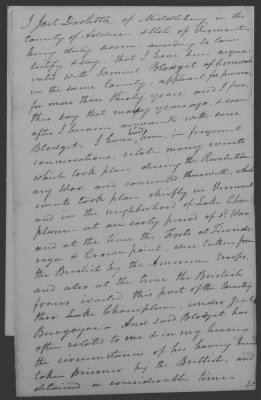 I Joel Doolittle of Middlebury in the
County of Addison & State of Vermont
being duly sworn, according to law
testify & say, that I have been acqua-
inted with Samuel Blodget of Cornwall
in the same County, applicant for pension
for more than thirty years, and I fur-
ther say that many years ago, & soon
after I became acquainted with said
Blodget, I have heard him, in frequent
conversations, relate many events
which took place during the Revolution-
ary War, and connected therewith, which
events took place chiefly in Vermont
and in the neighborhood of Lake Cham-
plain at an early period of sd War,
and at the time the Forts at Ticonde-
roga & Crown point, were taken from
the British by the American troops,
and also at the time the British
forces invaded this part of the Country
thro. Lake Champlain, under Genl
Burgoyne - And said Blodget has
often related to me & in my hearing
the circumstances of his having been
taken Prisoner by the British, and
detained a considerable time